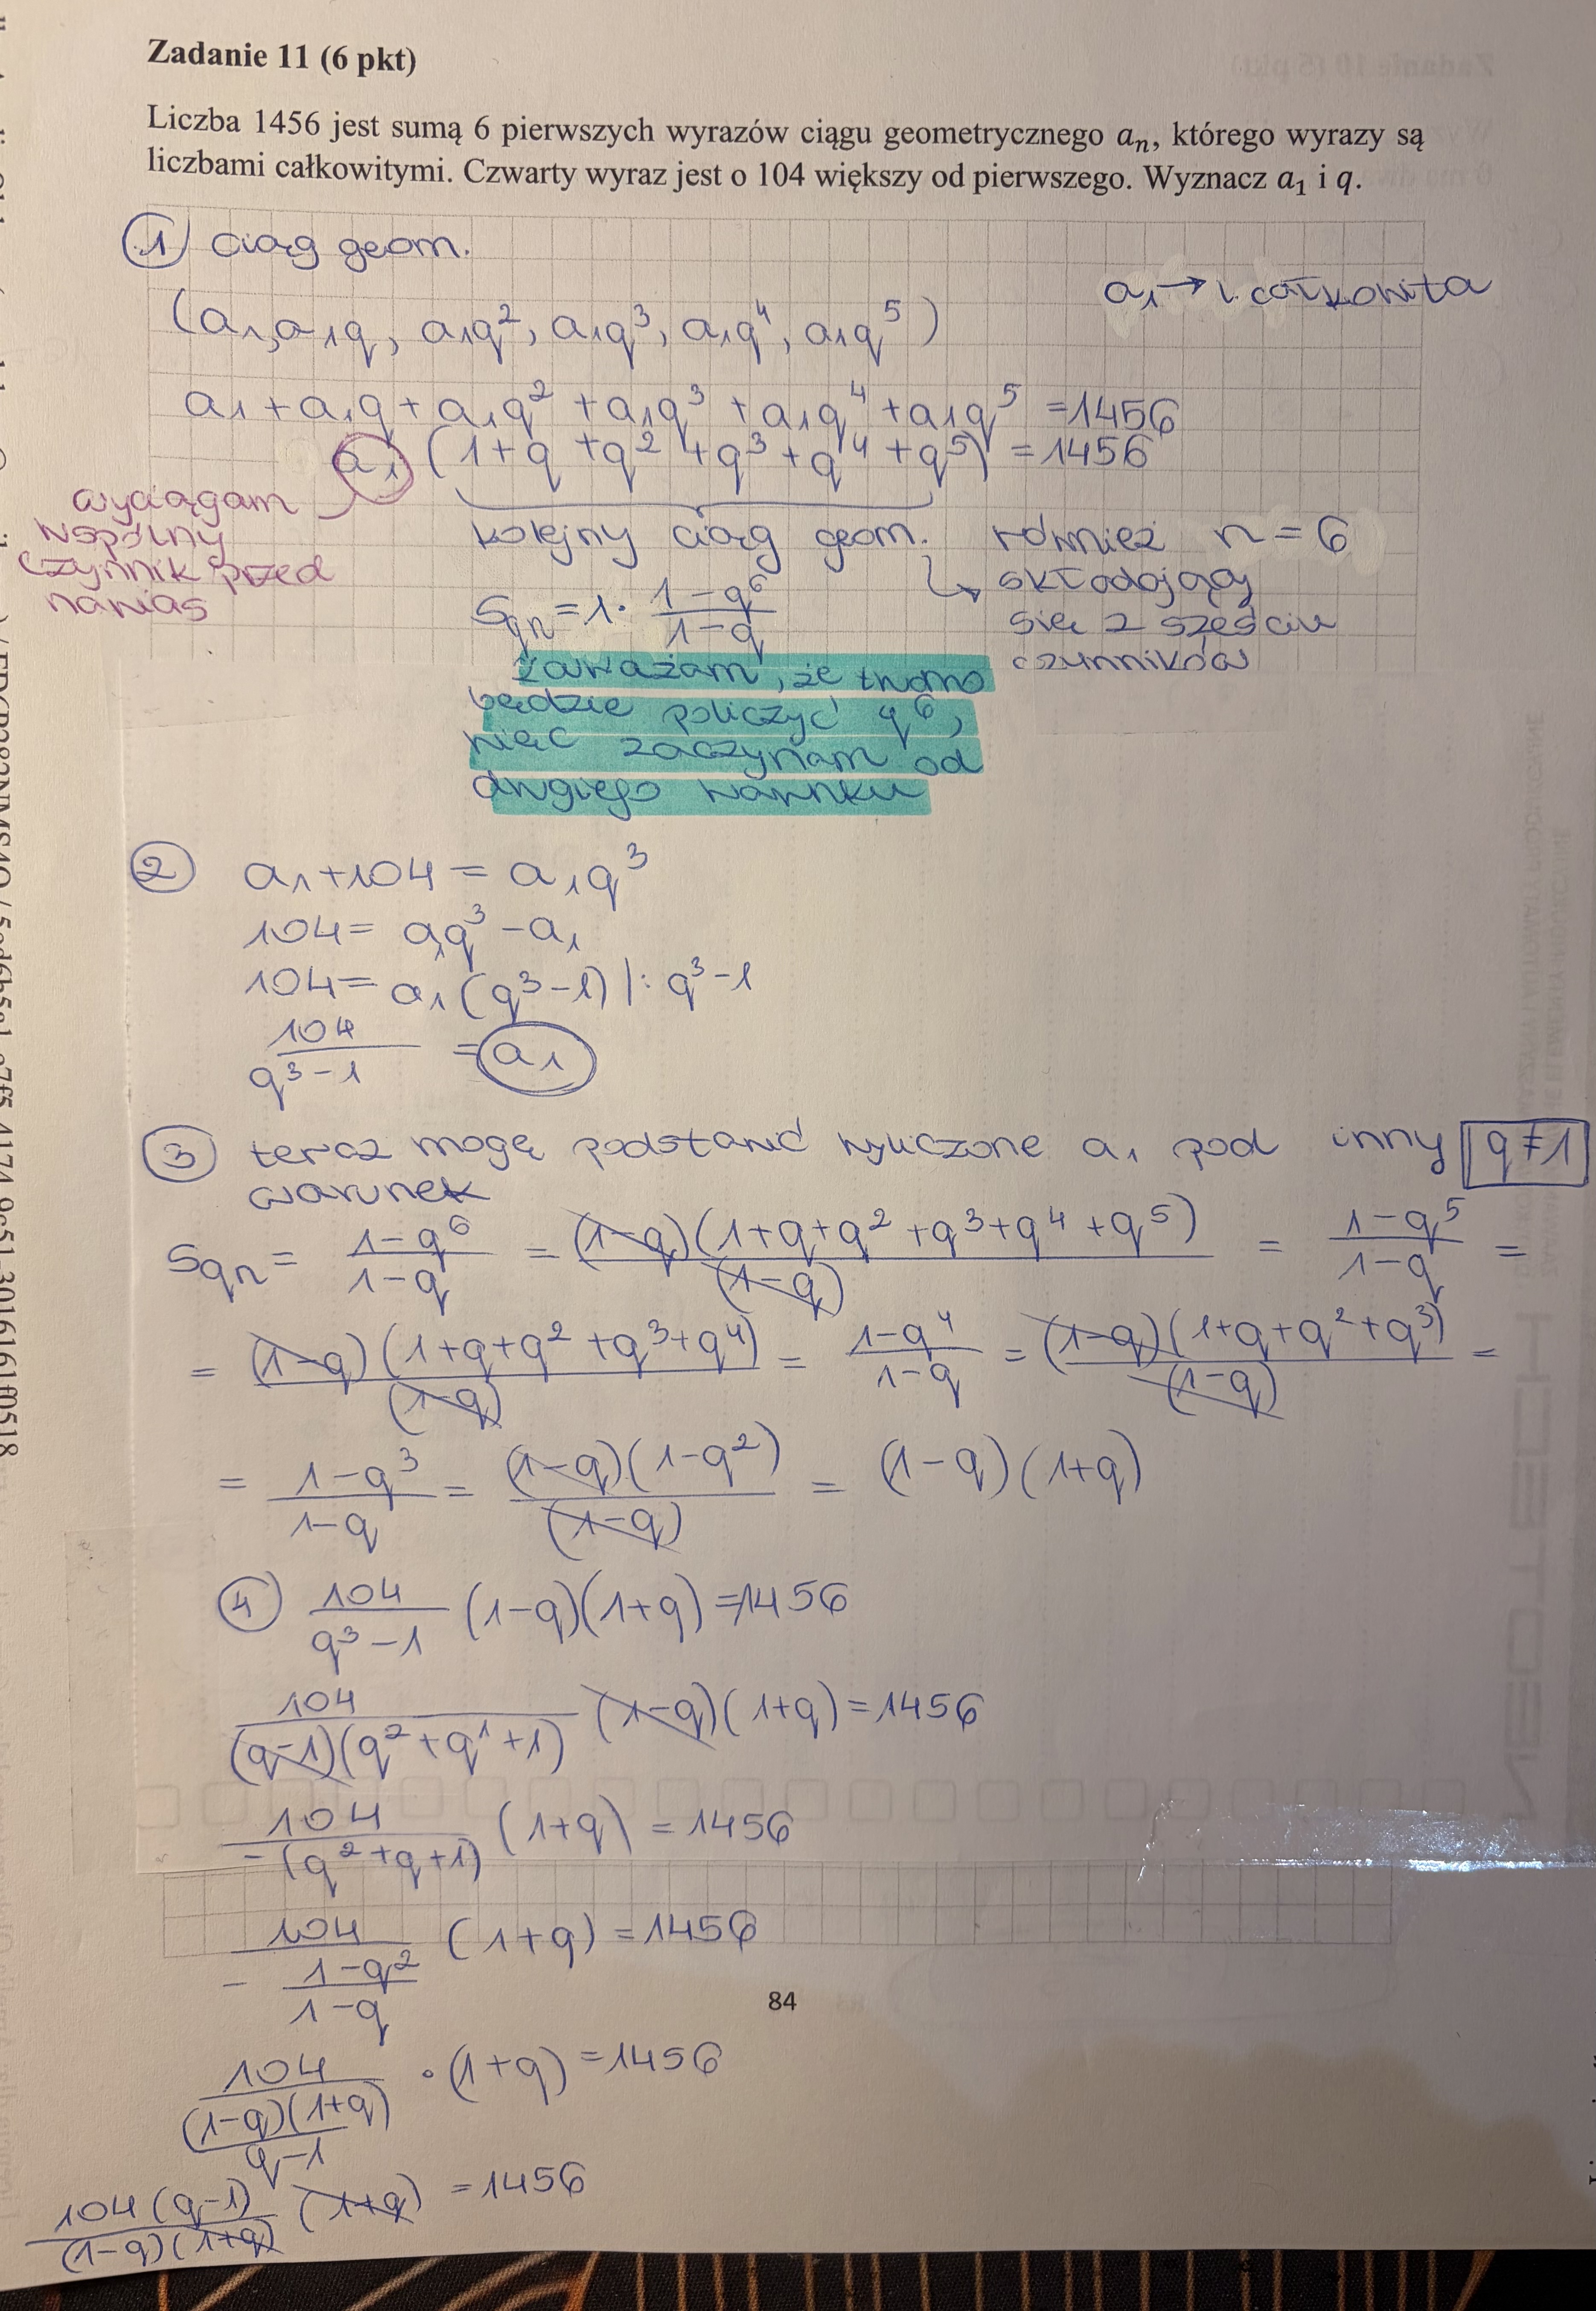 Zadanie 11 (6 pkt)
Liczba 1456 jest sumą 6 pierwszych wyrazów ciągu geometrycznego aₙ, którego wyrazy są
liczbami całkowitymi. Czwarty wyraz jest o 104 większy od pierwszego. Wyznacz a₁ i q.
① ciąg geom.
a₁ → l. całkowita
(a₁, a₁q, a₁q², a₁q³, a₁q⁴, a₁q⁵)
a₁ + a₁q + a₁q² + a₁q³ + a₁q⁴ + a₁q⁵ = 1456
a₁ (1+q+q²+q³+q⁴+q⁵) = 1456
wyciągam
wspólny
czynnik przed
nawias
kolejny ciąg geom. również n=6
↳ składający
się z sześciu
czynników
Sqn = 1 · (1-q⁶)/(1-q)
zauważam, że trudno
będzie policzyć q⁶,
więc zaczynam od
drugiego warunku
② a₁+104 = a₁q³
104 = a₁q³ - a₁
104 = a₁(q³-1) |: q³-1
104/(q³-1) = a₁
③ teraz mogę podstawić wyliczone a₁ pod inny q≠1
warunek
Sqn = (1-q⁶)/(1-q) = (1-q)(1+q+q²+q³+q⁴+q⁵)/(1-q) = (1-q⁵)/(1-q) =
= (1-q)(1+q+q²+q³+q⁴)/(1-q) = (1-q⁴)/(1-q) = (1-q)(1+q+q²+q³)/(1-q) =
= (1-q³)/(1-q) = (1-q)(1-q²)/(1-q) = (1-q)(1+q)
④ 104/(q³-1) (1-q)(1+q) = 1456
104/((q-1)(q²+q¹+1)) (1-q)(1+q) = 1456
104/(-(q²+q+1)) (1+q) = 1456
104/(-(1-q²)/(1-q)) (1+q) = 1456
84
104/((1-q)(1+q)/(q-1)) · (1+q) = 1456
104(q-1)/((1-q)(1+q)) (1+q) = 1456
NEOTECH